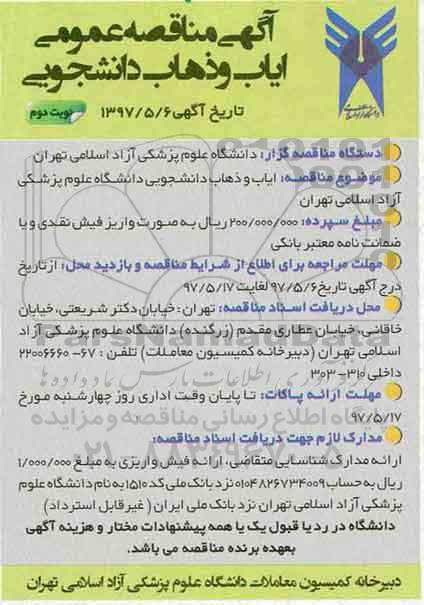 آگهی مناقصه عمومی
ایاب و ذهاب دانشجویی
تاریخ آگهی ۱۳۹۷/۵/۶
نوبت دوم
دستگاه مناقصه گزار: دانشگاه علوم پزشکی آزاد اسلامی تهران
موضوع مناقصه: ایاب و ذهاب دانشجویی دانشگاه علوم پزشکی
آزاد اسلامی تهران
مبلغ سپرده: ۲۰۰/۰۰۰/۰۰۰ ریال به صورت واریز فیش نقدی و یا
ضمانت نامه معتبر بانکی
مهلت مراجعه برای اطلاع از شرایط مناقصه و بازدید محل: از تاریخ
درج آگهی تاریخ ۹۷/۵/۶ لغایت ۹۷/۵/۱۷
محل دریافت اسناد مناقصه: تهران: خیابان دکتر شریعتی، خیابان
خاقانی، خیابان عطاری مقدم (زرگنده) دانشگاه علوم پزشکی آزاد
اسلامی تهران (دبیرخانه کمیسیون معاملات) تلفن: ۶۷-۲۲۰۰۶۶۶۰
داخلی ۳۱۰-۳۰۳
مهلت ارائه پاکات: تا پایان وقت اداری روز چهارشنبه مورخ
۹۷/۵/۱۷
مدارک لازم جهت دریافت اسناد مناقصه:
ارائه مدارک شناسایی متقاضی، ارائه فیش واریزی به مبلغ ۱/۰۰۰/۰۰۰
ریال به حساب ۰۱۰۴۸۲۶۷۳۴۰۰۹ نزد بانک ملی کد ۱۵۱۰ به نام دانشگاه علوم
پزشکی آزاد اسلامی تهران نزد بانک ملی ایران (غیر قابل استرداد)
دانشگاه در رد یا قبول یک یا همه پیشنهادات مختار و هزینه آگهی
بعهده برنده مناقصه می باشد.
دبیرخانه کمیسیون معاملات دانشگاه علوم پزشکی آزاد اسلامی تهران
ParsNamadData
پایگاه اطلاع رسانی مناقصه و مزایده